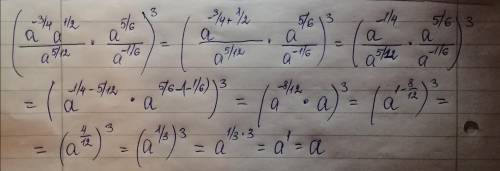 (a^{-3/4} a^{1/2} / a^{5/12} · a^{5/6} / a^{-1/6})^3 = (a^{-3/4 + 1/2} / a^{5/12} · a^{5/6} / a^{-1/6})^3 = (a^{-1/4} / a^{5/12} · a^{5/6} / a^{-1/6})^3
= (a^{-1/4 - 5/12} · a^{5/6 - (-1/6)})^3 = (a^{-8/12} · a)^3 = (a^{1 - 8/12})^3 =
= (a^{4/12})^3 = (a^{1/3})^3 = a^{1/3 · 3} = a^1 = a